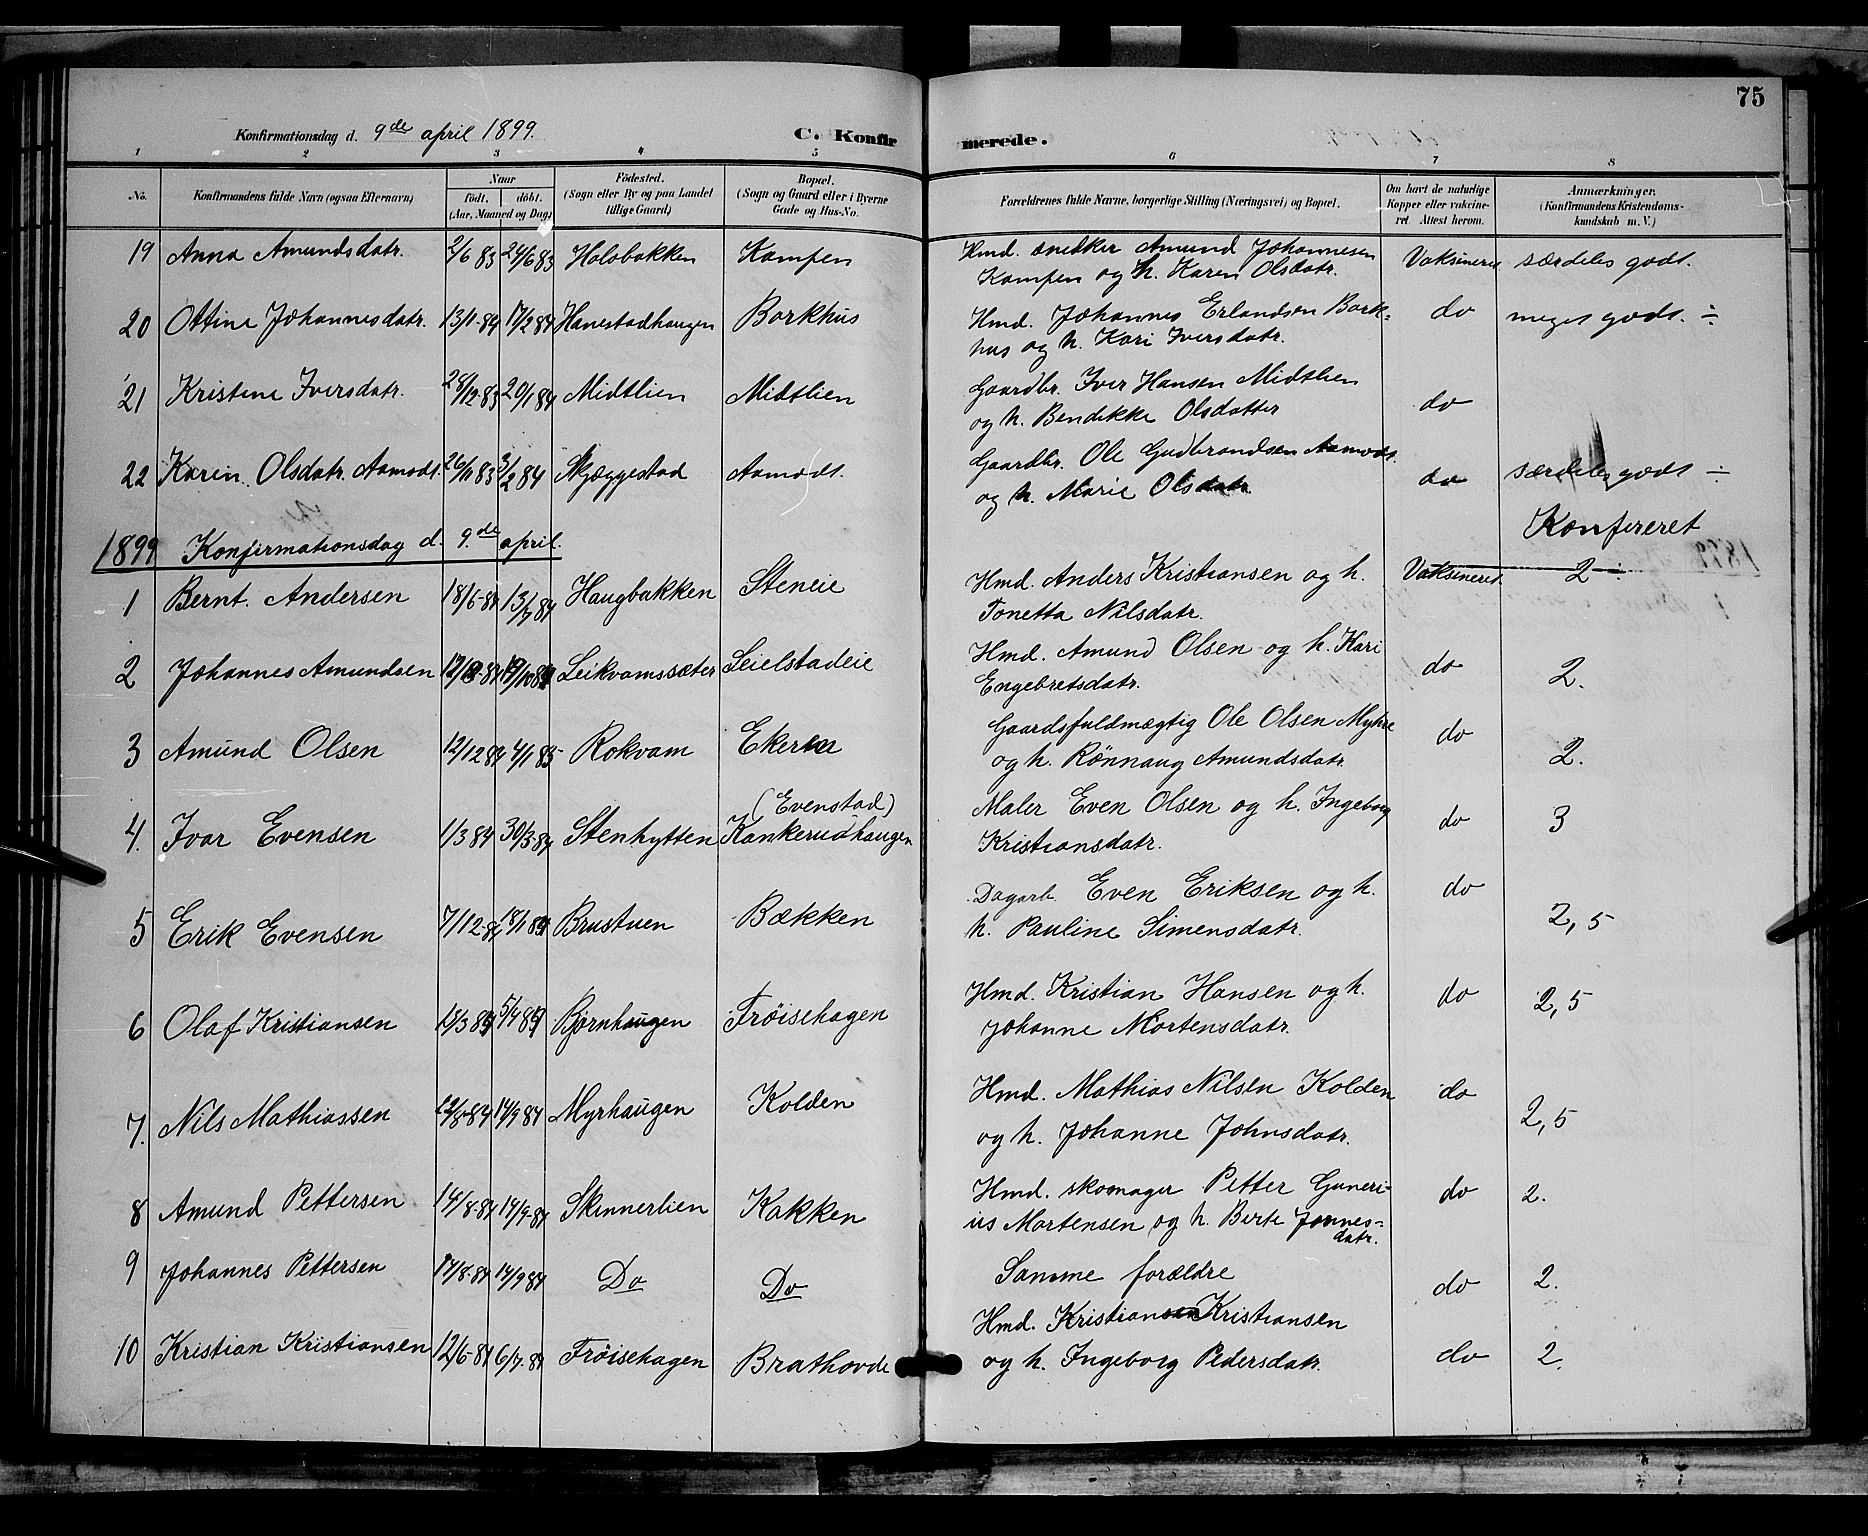 75
Konfirmationsdag d. 9de april 1899.
C. Konfirmerede.
1 2 3 4 5 6 7 8
No.
Konfirmandens fulde Navn (ogsaa Efternavn)
Naar
født. døbt.
(Aar, Maaned og Dag)
Fødested.
(Sogn eller By og paa Landet
tillige Gaard)
Bopæl.
(Sogn og Gaard eller i Byerne
Gade og Hus-No.
Forældrenes fulde Navne, borgerlige Stilling (Næringsvei) og Bopæl.
Om havt de naturlige
Kopper eller vakcine-
ret. Attest herom.
Anmærkninger.
(Konfirmandens Kristendoms-
kundskab m. V.)
19 Anna Amundsdatr. 2/6 83 24/6 83 Holobakken Kampen Hmd. snedker Amund Johannesen Vaksineret særdeles godt.
Kampen og h. Karen Olsdatr.
20 Ottine Johannesdatr. 13/1-84 17/2 84 Hanestadhaugen Barkhus Hmd. Johannes Erlandsen Bark- do meget godt. ÷
hus og h. Kari Iversdatr.
21 Kristine Iversdatr. 28/12-83 20/1 84 Midtlien Midtlien Gaardbr. Iver Hansen Midtlien do
og h. Bendikke Olsdatter
22 Karin Olsdatr. Aamodt. 26/11 83 3/2 84 Skjæggestad Aamodt. Gaardbr. Ole Gudbrandsen Aamodt. do særdeles godt ÷
og h. Marie Olsdatr
Konfereret
1899 Konfirmationsdag d. 9.de april.
1 Bernt. Andersen 18/6-84 13/7 84 Haugbakken Steneie Hmd. Anders Kristiansen og h. Vaksineret 2
Tonetta Nilsdatr.
2 Johannes Amundsen Leikvamssæter Leielstadeie Hmd. Amund Olsen og h. Kari do 2.
Engebretsdatr.
3 Amund Olsen 12/12 84 4/1 85 Rokvam Ekerner Gaardsfuldmægtig Ole Olsen Myhre do 2.
og h. Rønnaug Amundsdatr
4. Ivar Evensen 1/3 84 30/3-84 Stenhytten (Evenstad) Maler Even Olsen og h. Ingeborg do 3
Kankerudhaugen Kristiansdatr.
5 Erik Evensen 7/12-84 18/1 85 Brustuen Bækken Dagarb. Even Eriksen og h. do 2,5
h. Pauline Simensdatr.
6 Olaf Kristiansen Bjørnhaugen Frøisehagen Hmd. Kristian Hansen og h. do 2,5
Johanne Mortensdatr.
7. Nils Mathiassen 12/8-84 14/9 84 Myrhaugen Kolden Hmd. Mathias Nilsen Kolden do 2,5
og h. Johanne Johnsdatr.
8 Amund Pettersen 14/8-84 14/9-84 Skinnerlien Kakken Hmd. skomager Petter Guneri- do 2.
us Mortensen og h. Berte Jonnes-
datr.
9 Johannes Pettersen 14/8-84 14/9 84 Do Do Samme forældre do 2.
10 Kristian Kristiansen 12/6-84 6/7-84 Frøisehagen Brathovde Hmd. Kristian Kristiansen do 2.
og h. Ingeborg Pedersdatr.